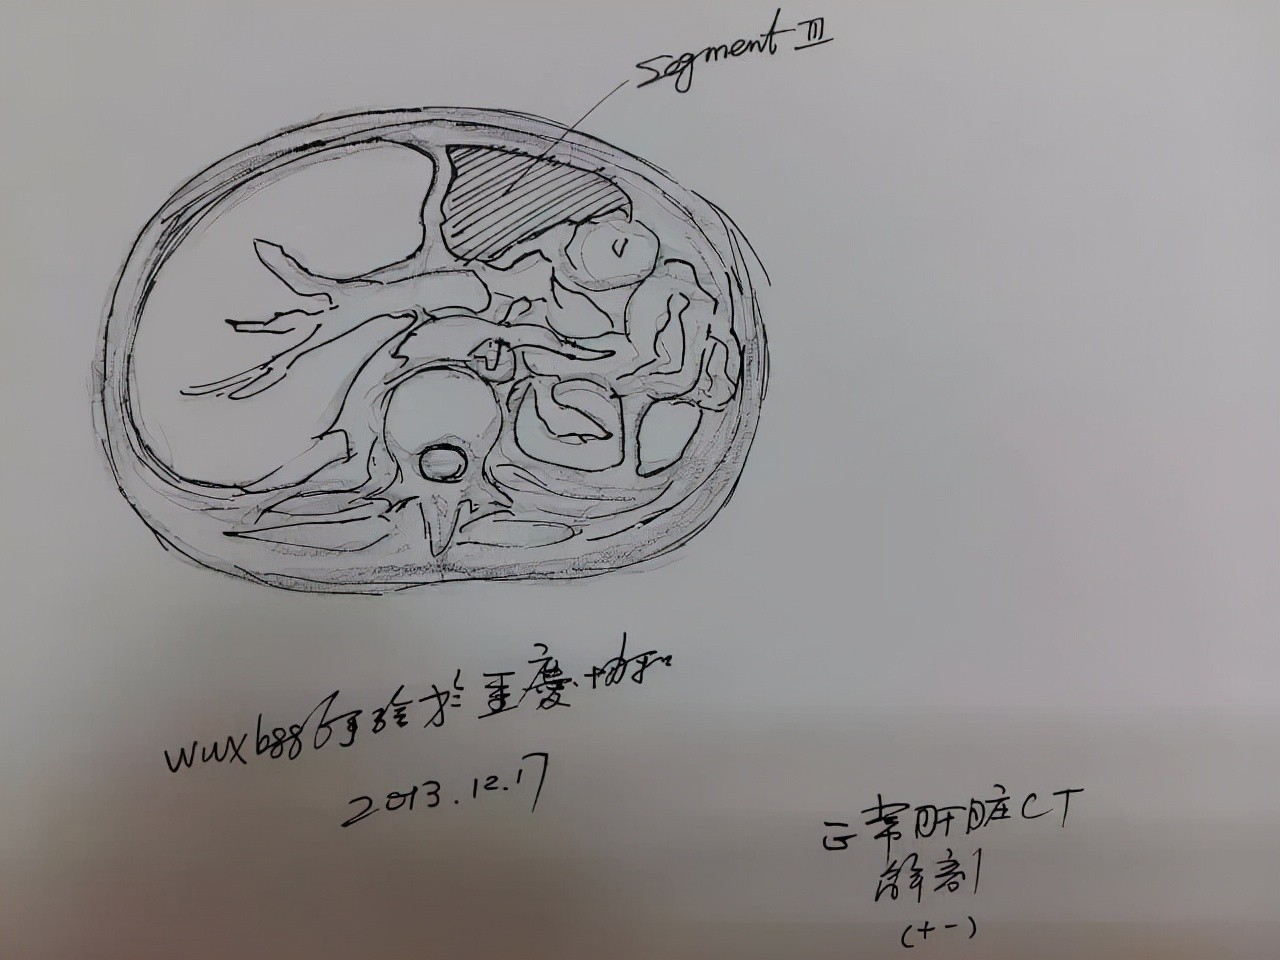 Segment III
wuxbgg 手绘于重慶协和
2013.12.17
正常肝脏CT
解剖
(十一)